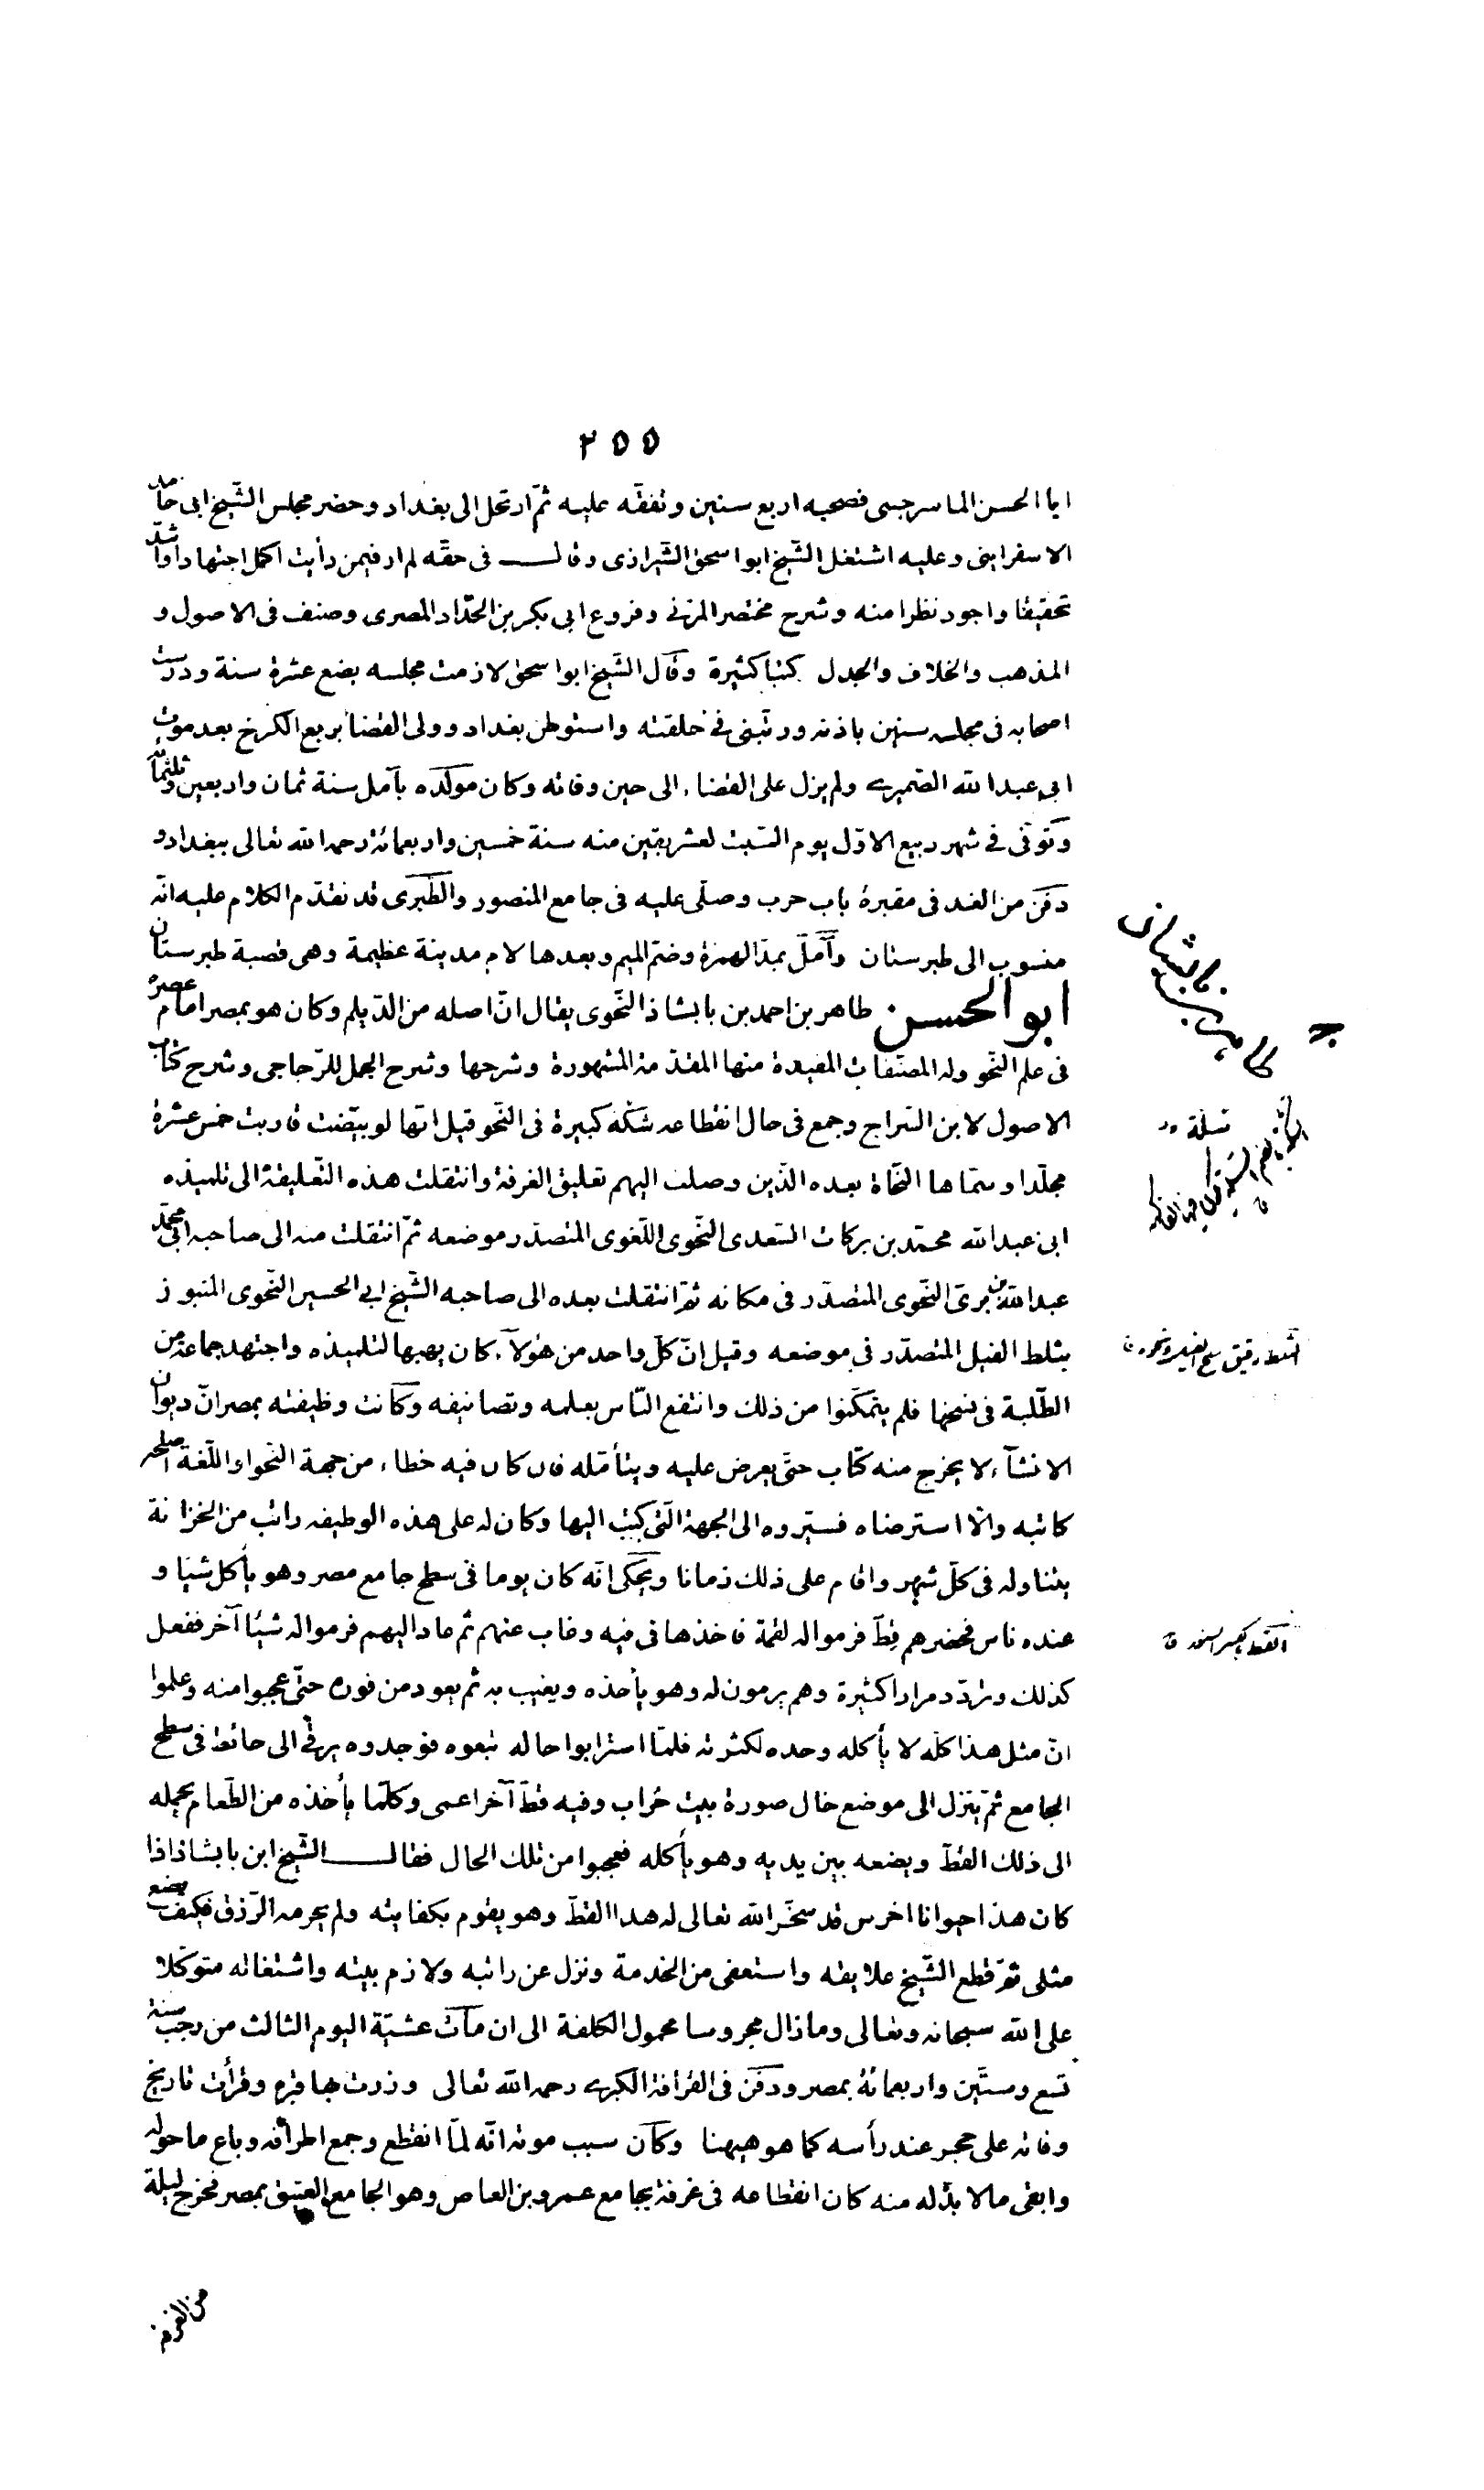 ٢٥٥
ابا الحسن الماسرجسى فصحبه اربع سنين وتفقّه عليه ثمّ ارتحل الى بغداد وحضر مجلس الشّيخ ابى حامد
الاسفراينى وعليه اشتغل الشّيخ ابو اسحق الشّيرازى وقال فى حقّه لم ار فيمن رأيت اكمل اجتهادا واشدّ
تحقيقا واجود نظرا منه وشرح مختصر المزنى وفروع ابى بكر بن الحدّاد المصرى وصنف فى الاصول و
المذهب والخلاف والجدل كتبا كثيرة وقال الشّيخ ابو اسحق لازمت مجلسه بضع عشرة سنة ودرّست
اصحابه فى مجلسه سنين باذنه ورتّبنى فى حلقته واستوطن بغداد وولى القضاء بربع الكرخ بعد موت
ابى عبدالله الصّيمرى ولم يزل على القضاء الى حين وفاته وكان مولده بآمل سنة ثمان واربعين وثلثمائة
وتوفّى فى شهر ربيع الاوّل يوم السّبت لعشر بقين منه سنة خمسين واربعمائة رحمه الله تعالى ببغداد و
دفن من الغد فى مقبرة باب حرب وصلّى عليه فى جامع المنصور والطّبرى قد تقدّم الكلام عليه انّه
منسوب الى طبرستان وآمل بمدّ الهمزة وضمّ الميم وبعدها لام مدينة عظيمة وهى قصبة طبرستان
ابو الحسن طاهر بن احمد بن بابشاذ النّحوى يقال انّ اصله من الدّيلم وكان هو بمصر امام عصره
فى علم النّحو وله المصنّفات المفيدة منها المقدّمة المشهورة وشرحها وشرح الجمل للزّجاجى وشرح كتاب
الاصول لابن السّراج وجمع فى حال انقطاعه شكّه كبيرة فى النّحو قيل انّها لو بيّضت قاربت خمس عشرة
مجلّدا وسمّاها النّحاة بعده الّذين وصلت اليهم تعليق الغرفة وانتقلت هذه التّعليقة الى تلميذه
ابى عبدالله محمّد بن بركات السّعدى النّحوى اللّغوى المتصدّر موضعه ثمّ انتقلت منه الى صاحبه ابى محمّد
عبدالله بن برّى النّحوى المتصدّر فى مكانه ثمّ انتقلت بعده الى صاحبه الشّيخ ابى الحسين النّحوى المنبوز
بثلط الفيل المتصدّر فى موضعه وقيل انّ كلّ واحد من هؤلاء كان يهبها لتلميذه واجتهد جماعة من
الطّلبة فى نسخها فلم يتمكّنوا من ذلك وانتفع النّاس بعلمه وتصانيفه وكانت وظيفته بمصر انّ ديوان
الانشاء لا يخرج منه كتاب حتّى يعرض عليه ويتأمّله فان كان فيه خطاء من جهة النّحو او اللّغة اصلحه
كاتبه والّا استرضاه فسيّروه الى الجهة الّتى كتب اليها وكان له على هذه الوظيفه راتب من الخزانة
يتناوله فى كلّ شهر واقام على ذلك زمانا ويحكى انّه كان يوما فى سطح جامع مصر وهو يأكل شيئا و
عنده ناس فحضرهم قطّ فرموا له لقمة فاخذها فى فيه وغاب عنهم ثم عاد اليهم فرموا له شيئا آخر ففعل
كذلك وتردّد مرارا كثيرة وهم يرمون له وهو يأخذه ويغيب به ثم يعود من فوره حتّى عجبوا منه وعلموا
انّ مثل هذا كلّه لا يأكله وحده لكثرته فلمّا استرابوا حاله تبعوه فوجدوه يرقى الى حائط فى سطح
الجامع ثمّ ينزل الى موضع خال صورة بيت خراب وفيه قطّ آخر اعمى وكلّما يأخذه من الطّعام يحمله
الى ذلك القطّ ويضعه بين يديه وهو يأكله فعجبوا من تلك الحال فقال الشّيخ ابن بابشاذ اذا
كان هذا حيوانا اخرس قد سخّر الله تعالى له هذا القطّ وهو يقوم بكفايته ولم يحرمه الرّزق فكيف يضع
مثلى ثمّ قطع الشّيخ علايقه واستعفى من الخدمة ونزل عن راتبه ولازم بيته واشتغاله متوكّلا
على الله سبحانه وتعالى وما زال محروسا محمول الكلفة الى ان مات عشيّة اليوم الثالث من رجب سنة
تسع وستّين واربعمائة بمصر ودفن فى القرافة الكبرى رحمه الله تعالى وزرت بها قبره وقرأت تاريخ
وفاته على حجر عند رأسه كما هو هيهنا وكان سبب موته انّه لمّا انقطع وجمع اطرافه وباع ما حوله
وابقى ما لا بدّ له منه كان انقطاعه فى غرفة بجامع عمرو بن العاص وهو الجامع العتيق بمصر فخرج ليلة
من الغرفة
طاهر بن بابشاذ
القط بالكسر السنور ق